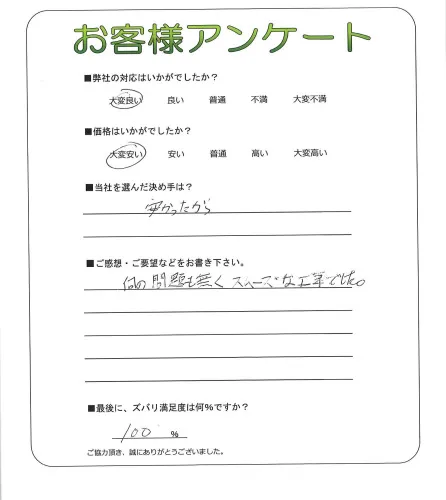 お客様アンケート
■弊社の対応はいかがでしたか？
大変良い 良い 普通 不満 大変不満
■価格はいかがでしたか？
大変安い 安い 普通 高い 大変高い
■当社を選んだ決め手は？
安かったから
■ご感想・ご要望などをお書き下さい。
何の問題も無くスムーズな工事でした。
■最後に、ズバリ満足度は何%ですか？
100 %
ご協力頂き、誠にありがとうございました。